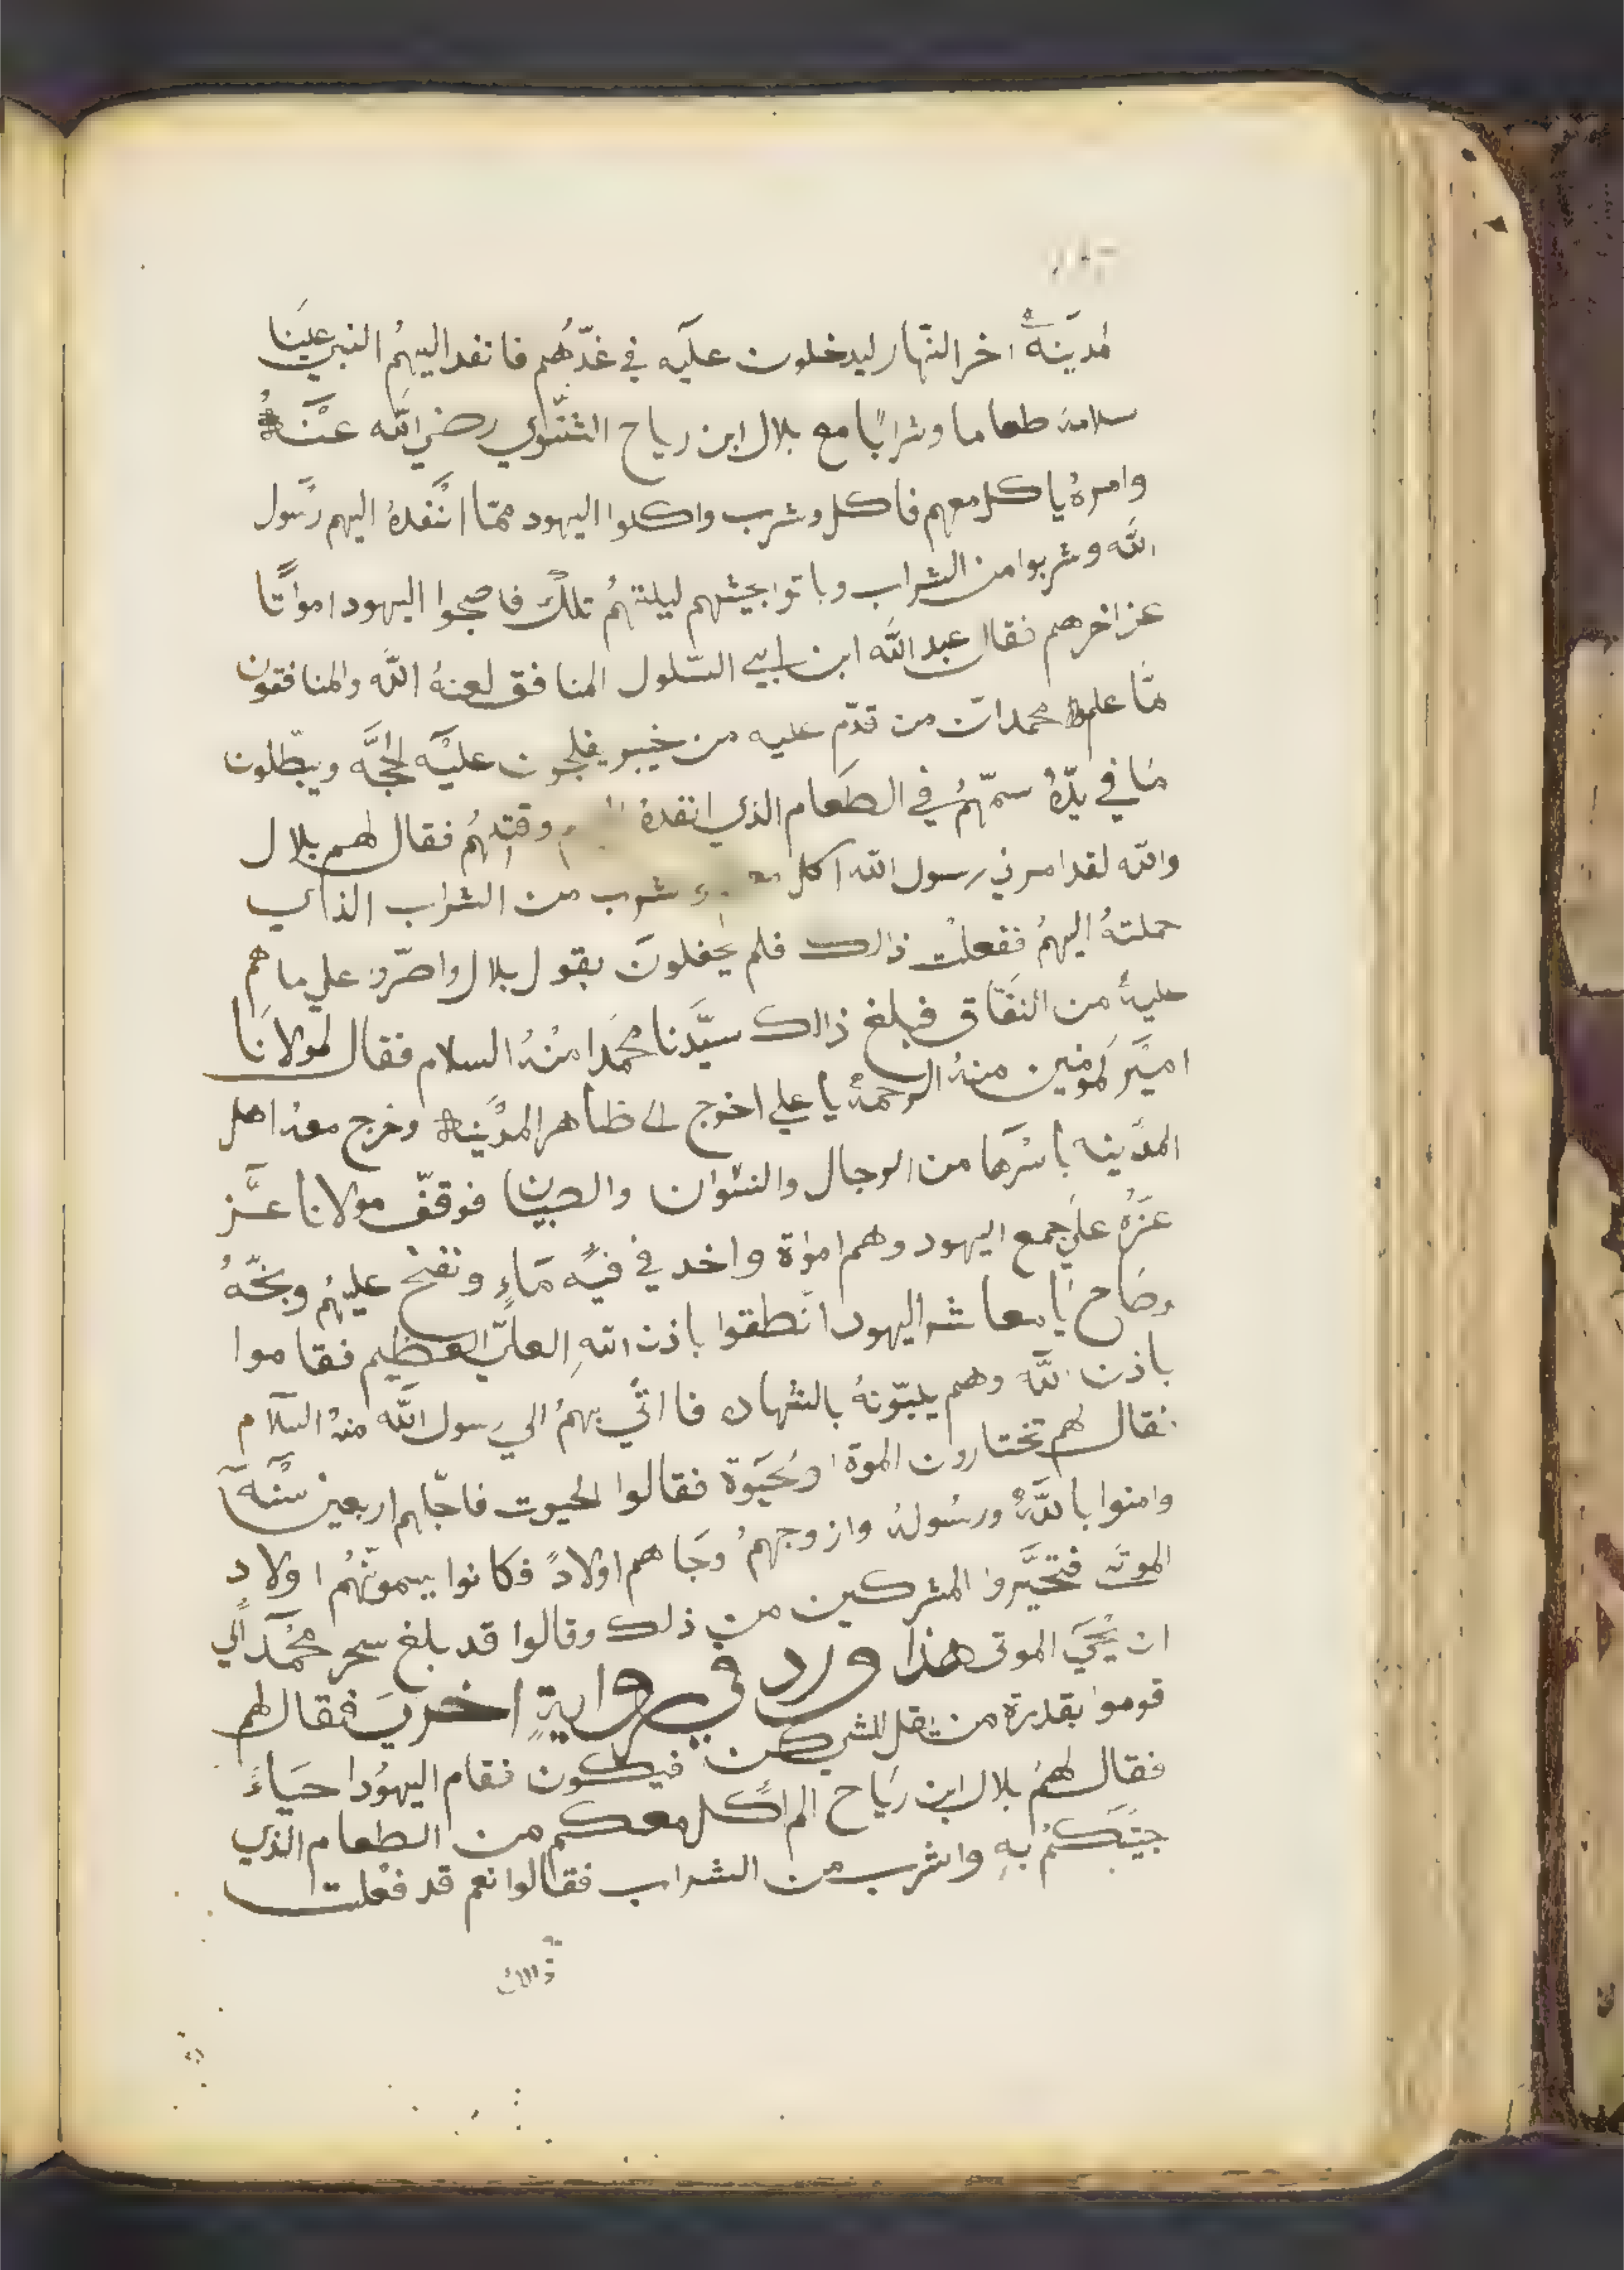 لمدينة اخر النهار ليدخلون عليه في غدّهم فانفد اليهم النبي علينا
سلامه طعاما وشرابًا مع بلال ابن رياح الشنوي رضي الله عنه
وامرهُ ياكل معهم فاكل وشرب واكلوا اليهود ممّا انفدهُ اليهم رسول
الله وشربوا من الشراب وباتوا بجيشهم ليلتهمُ تلك فاصبحوا اليهود امواتًا
عن اخرهم فقال عبد الله ابن ابي السّلول المنافق لعنهُ الله والمنافقون
لمّا علم محمد انّ من قدّم عليه من خيبر يفلجون عليه الحجّه ويبطّلون
مَا في يدّهُ سمّهمُ في الطعام الذي انفدهُ وقتلهُم فقال لهم بلال
والله لقد امرني رسول الله اكل شرب من الشراب الذي
حملتهُ اليهمُ ففعلت ذالك فلم يحفلونَ بقول بلال واصرّوا علي ما هم
عليهُ من النفاق فبلغ ذالك سيّدنا محمدا منهُ السلام فقال لمولانا
اميّر لمومنين منهُ الرحمهُ يا علي اخرج الى ظاهر المدّينه وخرج معهُ اهل
المدّينه باسرها من الرجال والنسوان والصبيان فوقفّ مولانا عَّز
عَزهُ علي جمع اليهود وهم امواة واخد في فيّه مَاءٍ ونفخ عليهُم وبخّهُ
وصَاح يا معاشر اليهود انطقوا باذن اللهِ العليّ العظيم فقاموا
باذن الله وهم يلبّونهُ بالشهاده فااتي بهمُ الي رسول الله منهُ السلام
فقال لهم تختارون الموة اولحيَوة فقالوا الحيوت فاجّلهم اربعين سَنّه
وامنوا باللّهُ ورسُولهُ وازوجهمُ وجَاهم اولادً فكانوا يسمونّهُم اولاد
الموتَى فتحيَّروا المشركين من ذلك وقالوا قد بلغ سحر محمّدًا الي
ان يحْيَي الموتى هذا ورد في رواية اخري فقال لهم
قوموا بقدرة من يقل للشي كن فيكون فقام اليهوُد احيَاءً
فقال لهمُ بلال ابن ريَاح الم اكل معكم من الطعام الذي
جيتكمُ بهِ واشرب من الشراب فقالوا نعم قد فعلت
ذالك